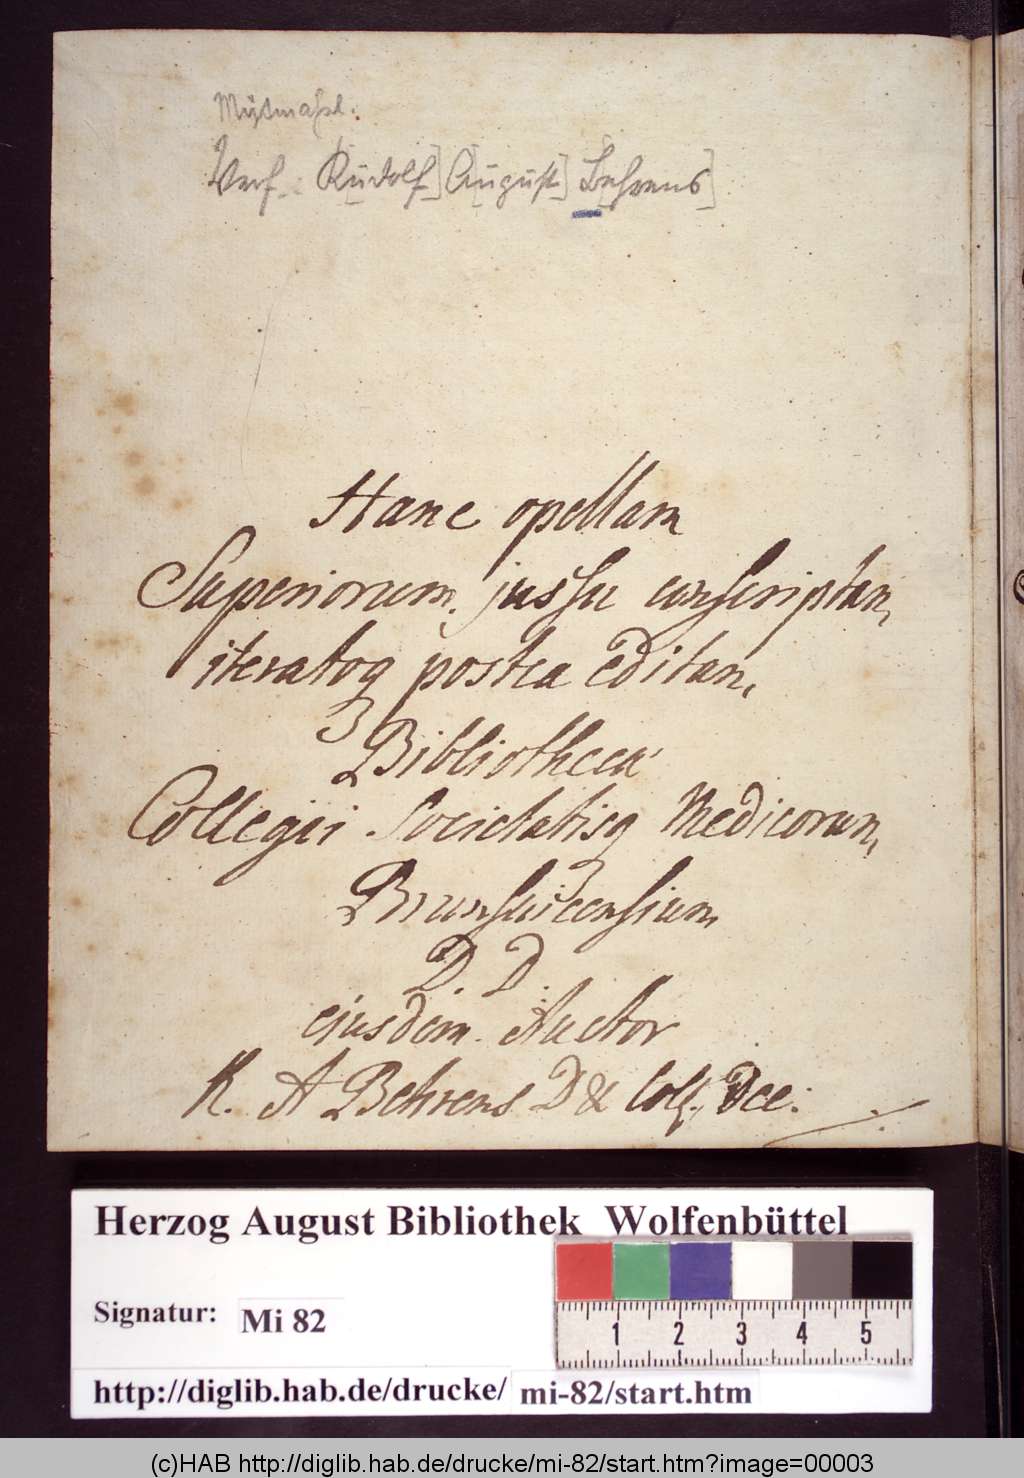 Verf. Rudolf] August] Behrens]
Hanc opellam
Superiorum jussu conscriptam,
iteratoq postea editam,
Bibliothecae
Collegii Societatisq Medicorum,
Brunsuicensium
D. D.
ejusdem Auctor
R. A Behrens D & Coll. Dec:
Herzog August Bibliothek Wolfenbüttel
Signatur: Mi 82
1 2 3 4 5
http://diglib.hab.de/drucke/ mi-82/start.htm
(c)HAB http://diglib.hab.de/drucke/mi-82/start.htm?image=00003